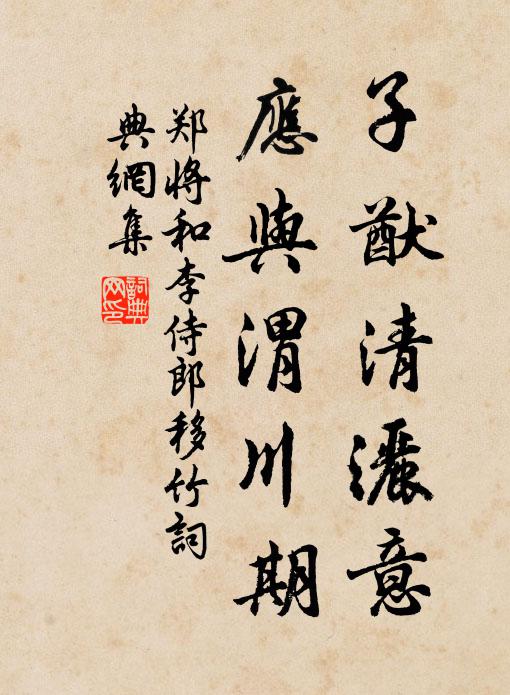 子猷清灑意
應與渭川期
郑將和李侍郎移竹詞
典網集
詞典网印